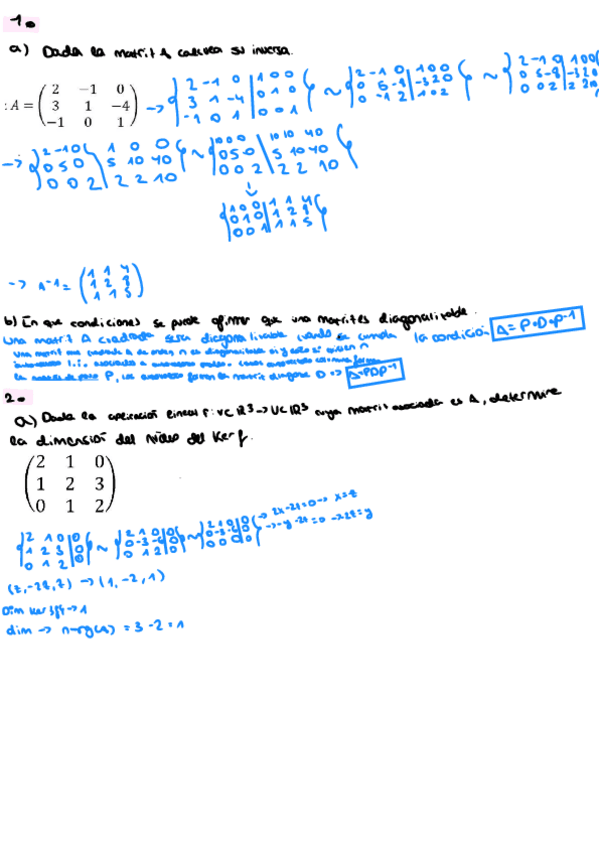 1.
a) Dada la matriz A calcula su inversa.
: A = ( 2 -1 0 / 3 1 -4 / -1 0 1 ) → { 2 -1 0 | 1 0 0 / 3 1 -4 | 0 1 0 / -1 0 1 | 0 0 1 } ~ { 2 -1 0 | 1 0 0 / 0 5 -8 | -3 2 0 / 0 -1 2 | 1 0 2 } ~ { 2 -1 0 | 1 0 0 / 0 5 -8 | -3 2 0 / 0 0 2 | 2 2 10 }
→ { 2 -1 0 | 1 0 0 / 0 5 0 | 5 10 40 / 0 0 2 | 2 2 10 } ~ { 10 0 0 | 10 10 40 / 0 5 0 | 5 10 40 / 0 0 2 | 2 2 10 }
↓
{ 1 0 0 | 1 1 4 / 0 1 0 | 1 2 8 / 0 0 1 | 1 1 5 }
→ A-1 = ( 1 1 4 / 1 2 8 / 1 1 5 )
b) En que condiciones se puede afirmar que una matriz es diagonalizable.
Una matriz A cuadrada sera diagonalizable cuando se cumpla la condición A = P·D·P-1
Una matriz cuadrada A de orden n es diagonalizable si y solo si existen n
autovectores l.i. asociados a
la matriz de paso P, los autovalores forman la matriz diagonal D => A=PDP-1
2.
a) Dada la aplicación lineal f: V⊂ℝ3 → U⊂ℝ3 cuya matriz asociada es A, determine
la dimensión del núcleo del Ker f.
( 2 1 0 / 1 2 3 / 0 1 2 )
{ 2 1 0 | 0 / 1 2 3 | 0 / 0 1 2 | 0 } ~ { 2 1 0 | 0 / 0 -3 -6 | 0 / 0 1 2 | 0 } ~ { 2 1 0 | 0 / 0 -3 -6 | 0 / 0 0 0 | 0 } → 2x-2z=0 → x=z
→ -y-2z=0 → -2z=y
(z, -2z, z) → (1, -2, 1)
Dim Ker {f} → 1
dim → n-rg(A) = 3 - 2 = 1